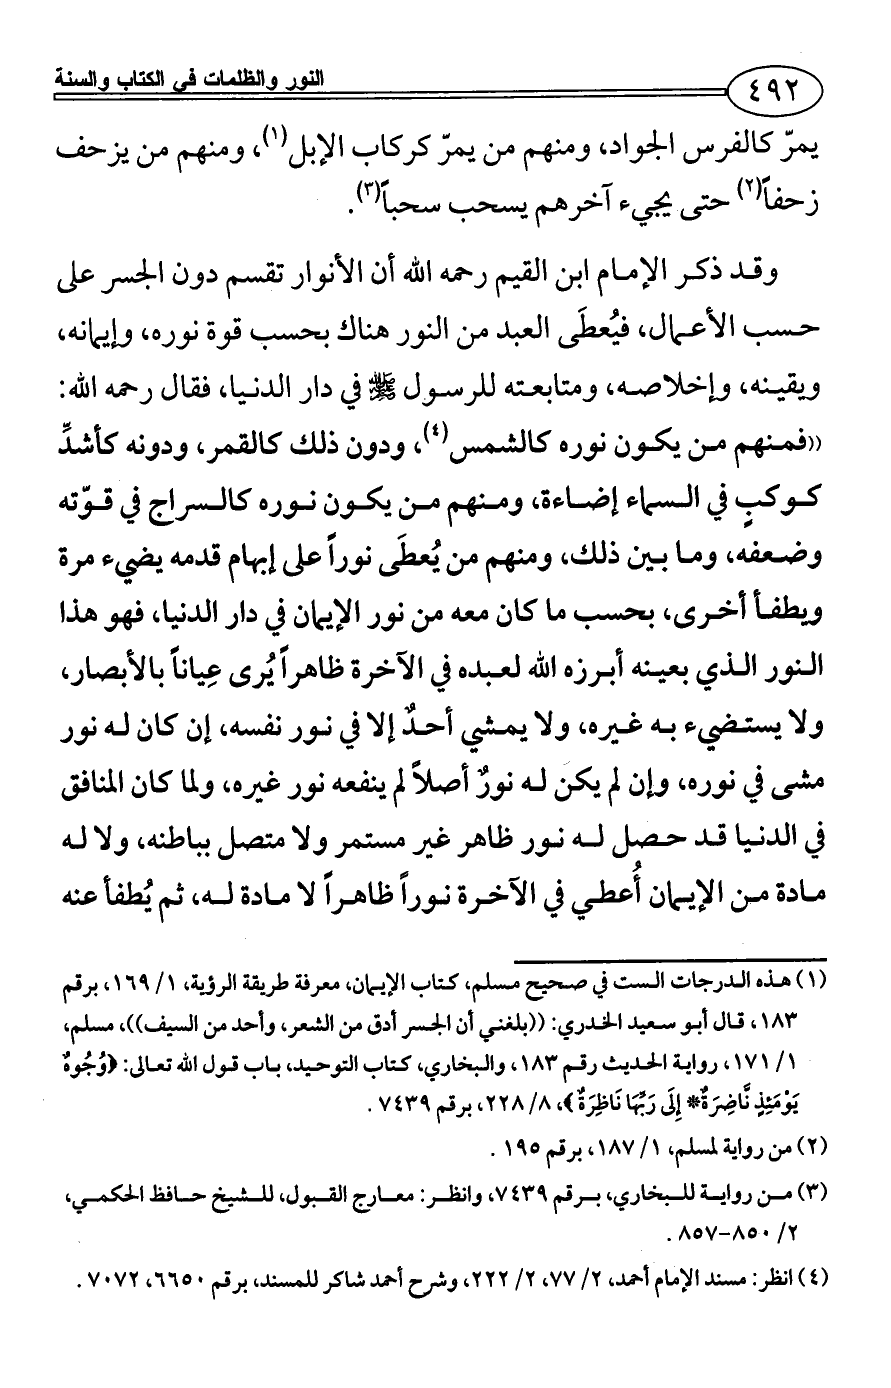 ٤٩٢
النور والظلمات في الكتاب والسنة
يمرّ كالفرس الجواد، ومنهم من يمرّ كركاب الإبل(١)، ومنهم من يزحف
زحفاً(٢) حتى يجيء آخرهم يسحب سحباً(٣).
وقد ذكر الإمام ابن القيم رحمه الله أن الأنوار تقسم دون الجسر على
حسب الأعمال، فيُعطَى العبد من النور هناك بحسب قوة نوره، وإيمانه،
ويقينه، وإخلاصه، ومتابعته للرسول ﷺ في دار الدنيا، فقال رحمه الله:
((فمنهم من يكون نوره كالشمس(٤)، ودون ذلك كالقمر، ودونه كأشدِّ
كوكبٍ في السماء إضاءة، ومنهم من يكون نوره كالسراج في قوّته
وضعفه، وما بين ذلك، ومنهم من يُعطَى نوراً على إبهام قدمه يضيء مرة
ويطفأ أخرى، بحسب ما كان معه من نور الإيمان في دار الدنيا، فهو هذا
النور الذي بعينه أبرزه الله لعبده في الآخرة ظاهراً يُرى عِياناً بالأبصار،
ولا يستضيء به غيره، ولا يمشي أحدٌ إلا في نور نفسه، إن كان له نور
مشى في نوره، وإن لم يكن له نورٌ أصلاً لم ينفعه نور غيره، ولما كان المنافق
في الدنيا قد حصل له نور ظاهر غير مستمر ولا متصل بباطنه، ولا له
مادة من الإيمان أُعطي في الآخرة نوراً ظاهراً لا مادة له، ثم يُطفأ عنه
(١) هذه الدرجات الست في صحيح مسلم، كتاب الإيمان، معرفة طريقة الرؤية، ١/ ١٦٩، برقم
١٨٣، قال أبو سعيد الخدري: ((بلغني أن الجسر أدق من الشعر، وأحد من السيف))، مسلم،
١/ ١٧١، رواية الحديث رقم ١٨٣، والبخاري، كتاب التوحيد، باب قول الله تعالى: ﴿وُجُوهٌ
يَوْمَئِذٍ نَّاضِرَةٌ* إِلَى رَبِّهَا نَاظِرَةٌ﴾، ٨/ ٢٢٨، برقم ٧٤٣٩.
(٢) من رواية لمسلم، ١/ ١٨٧، برقم ١٩٥.
(٣) من رواية للبخاري، برقم ٧٤٣٩، وانظر: معارج القبول، للشيخ حافظ الحكمي،
٢/ ٨٥٠-٨٥٧.
(٤) انظر: مسند الإمام أحمد، ٢/ ٧٧، ٢/ ٢٢٢، وشرح أحمد شاكر للمسند، برقم ٦٦٥٠، ٧٠٧٢.